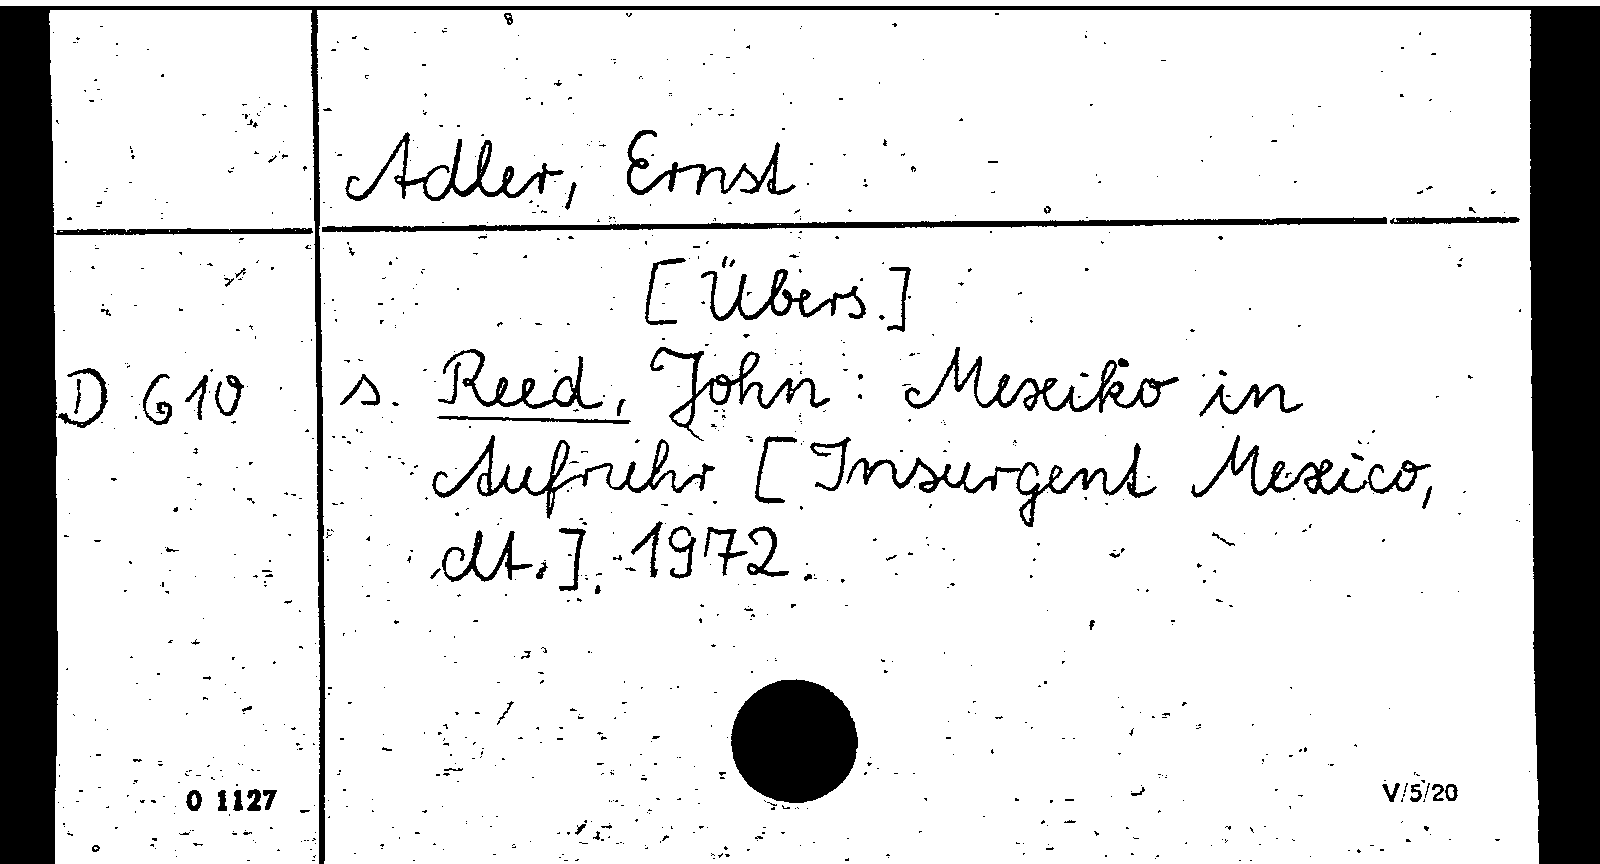 Adler, Ernst
[Übers.]
D 610 s. Reed, John: Mexiko in
Aufruhr [Insurgent Mexico,
dt.]. 1972.
0 1127
V/5/20